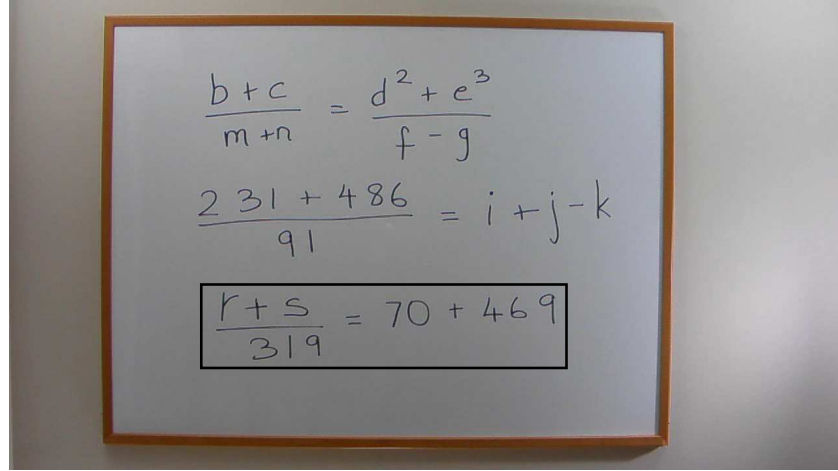 (b + c)/(m + n) = (d² + e³)/(f - g)
(231 + 486)/91 = i + j - k
(r + s)/319 = 70 + 469